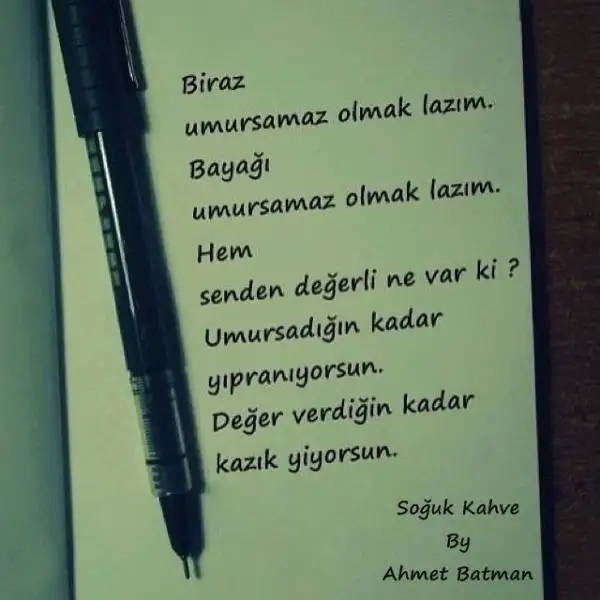 Biraz
umursamaz olmak lazım.
Bayağı
umursamaz olmak lazım.
Hem
senden değerli ne var ki ?
Umursadığın kadar
yıpranıyorsun.
Değer verdiğin kadar
kazık yiyorsun.
Soğuk Kahve
By
Ahmet Batman